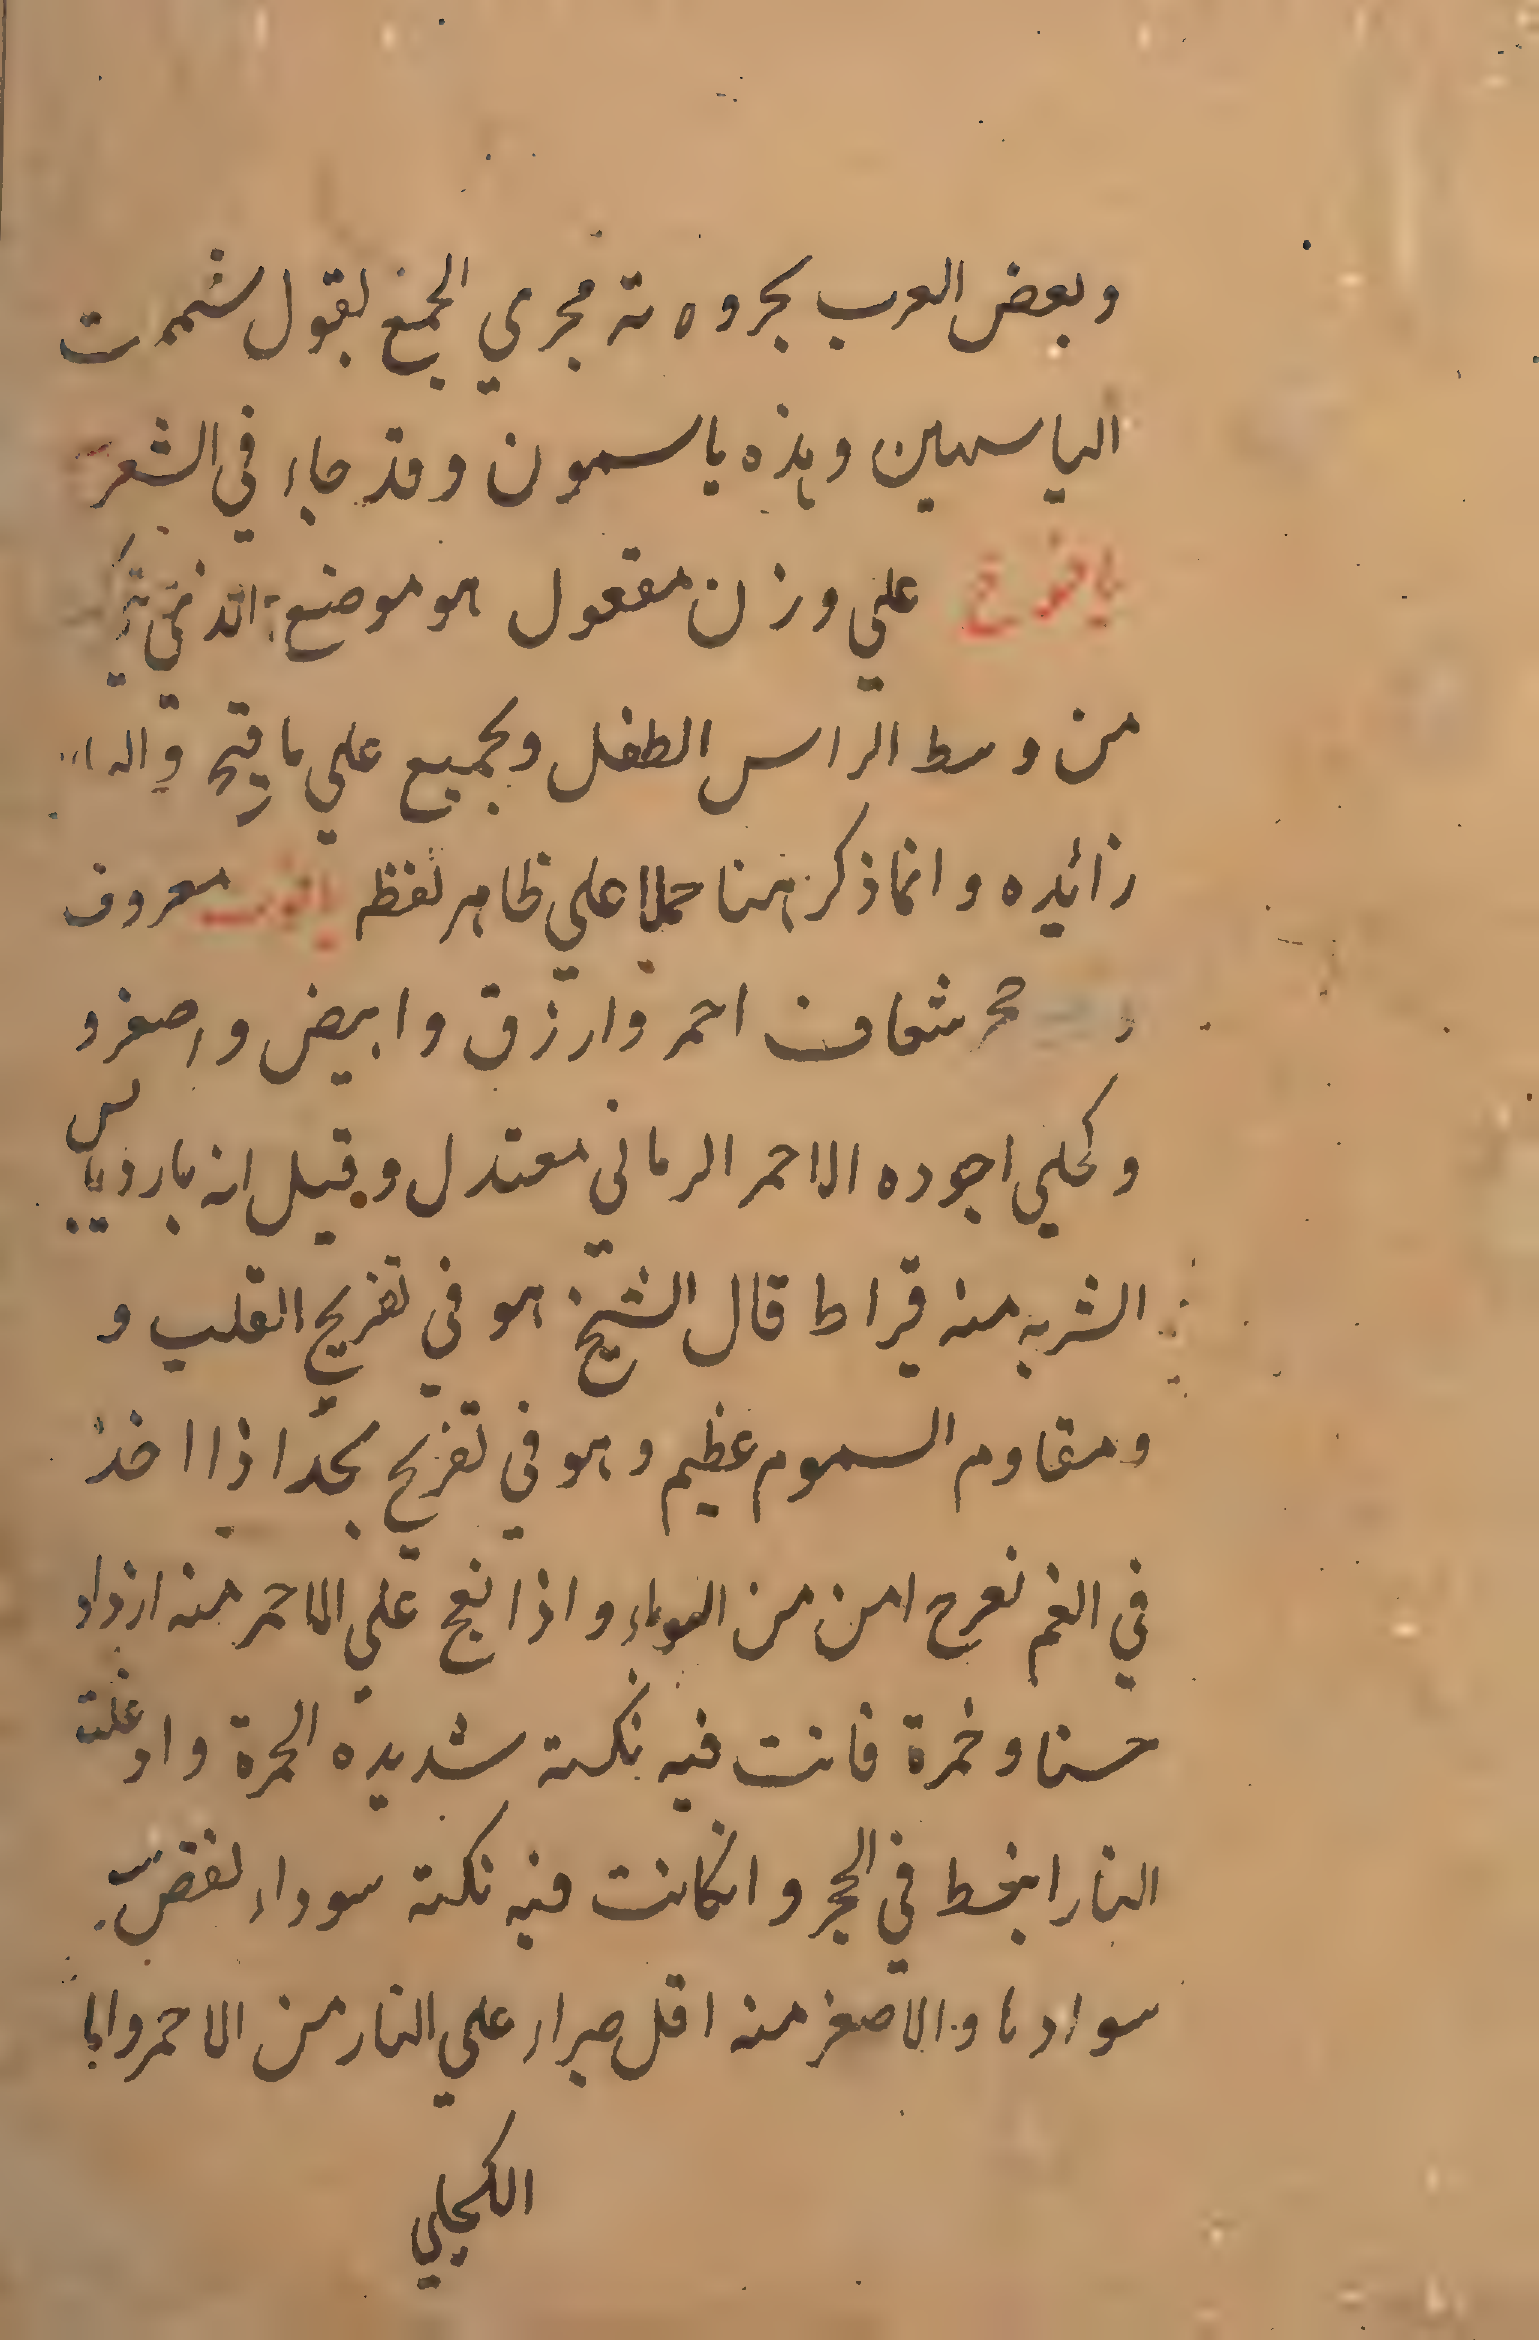 وبعض العرب يجروه ته مجري الجمع بقول شممت
الياسمين وهذه ياسمون وقد جاء في الشعر
يافوخ علي وزن مفعول هو موضع الذي
من وسط الراس الطفل ويجميع علي يافيخ و
زائيده وانما ذكر هنا حملا علي ظاهر لفظه ياقوت معروف
حجر شفاف احمر وارزق وابيض واصفر و
وكحلي اجوده الاحمر الرماني معتدل وقيل انه بارد يابس
الشربه منه قيراط قال الشيخ هو في تفريح القلب و
ومقاوم السموم عظيم وهو في تفريح بجدا اذا اخذ
في الفم نفرح امن من الوباء واذا نفخ علي الاحمر منه ازداد
حسنا وخمرة فانت فيه نكتة شديده الحمرة واد غلت
النار انبخط في الحجر وانكانت فيه نكتة سوداء نقص
سوادها والاصفر منه اقل صبراء علي النار من الاحمر واما
الكحلي